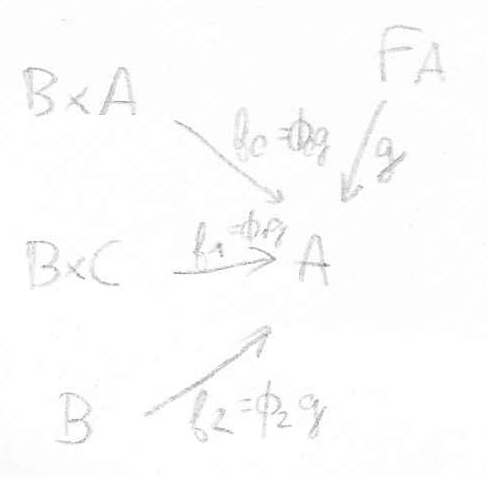 FA
B×A
f₀=ϕ₀g
g
B×C
f₁=ϕ₁g
A
B
f₂=ϕ₂g